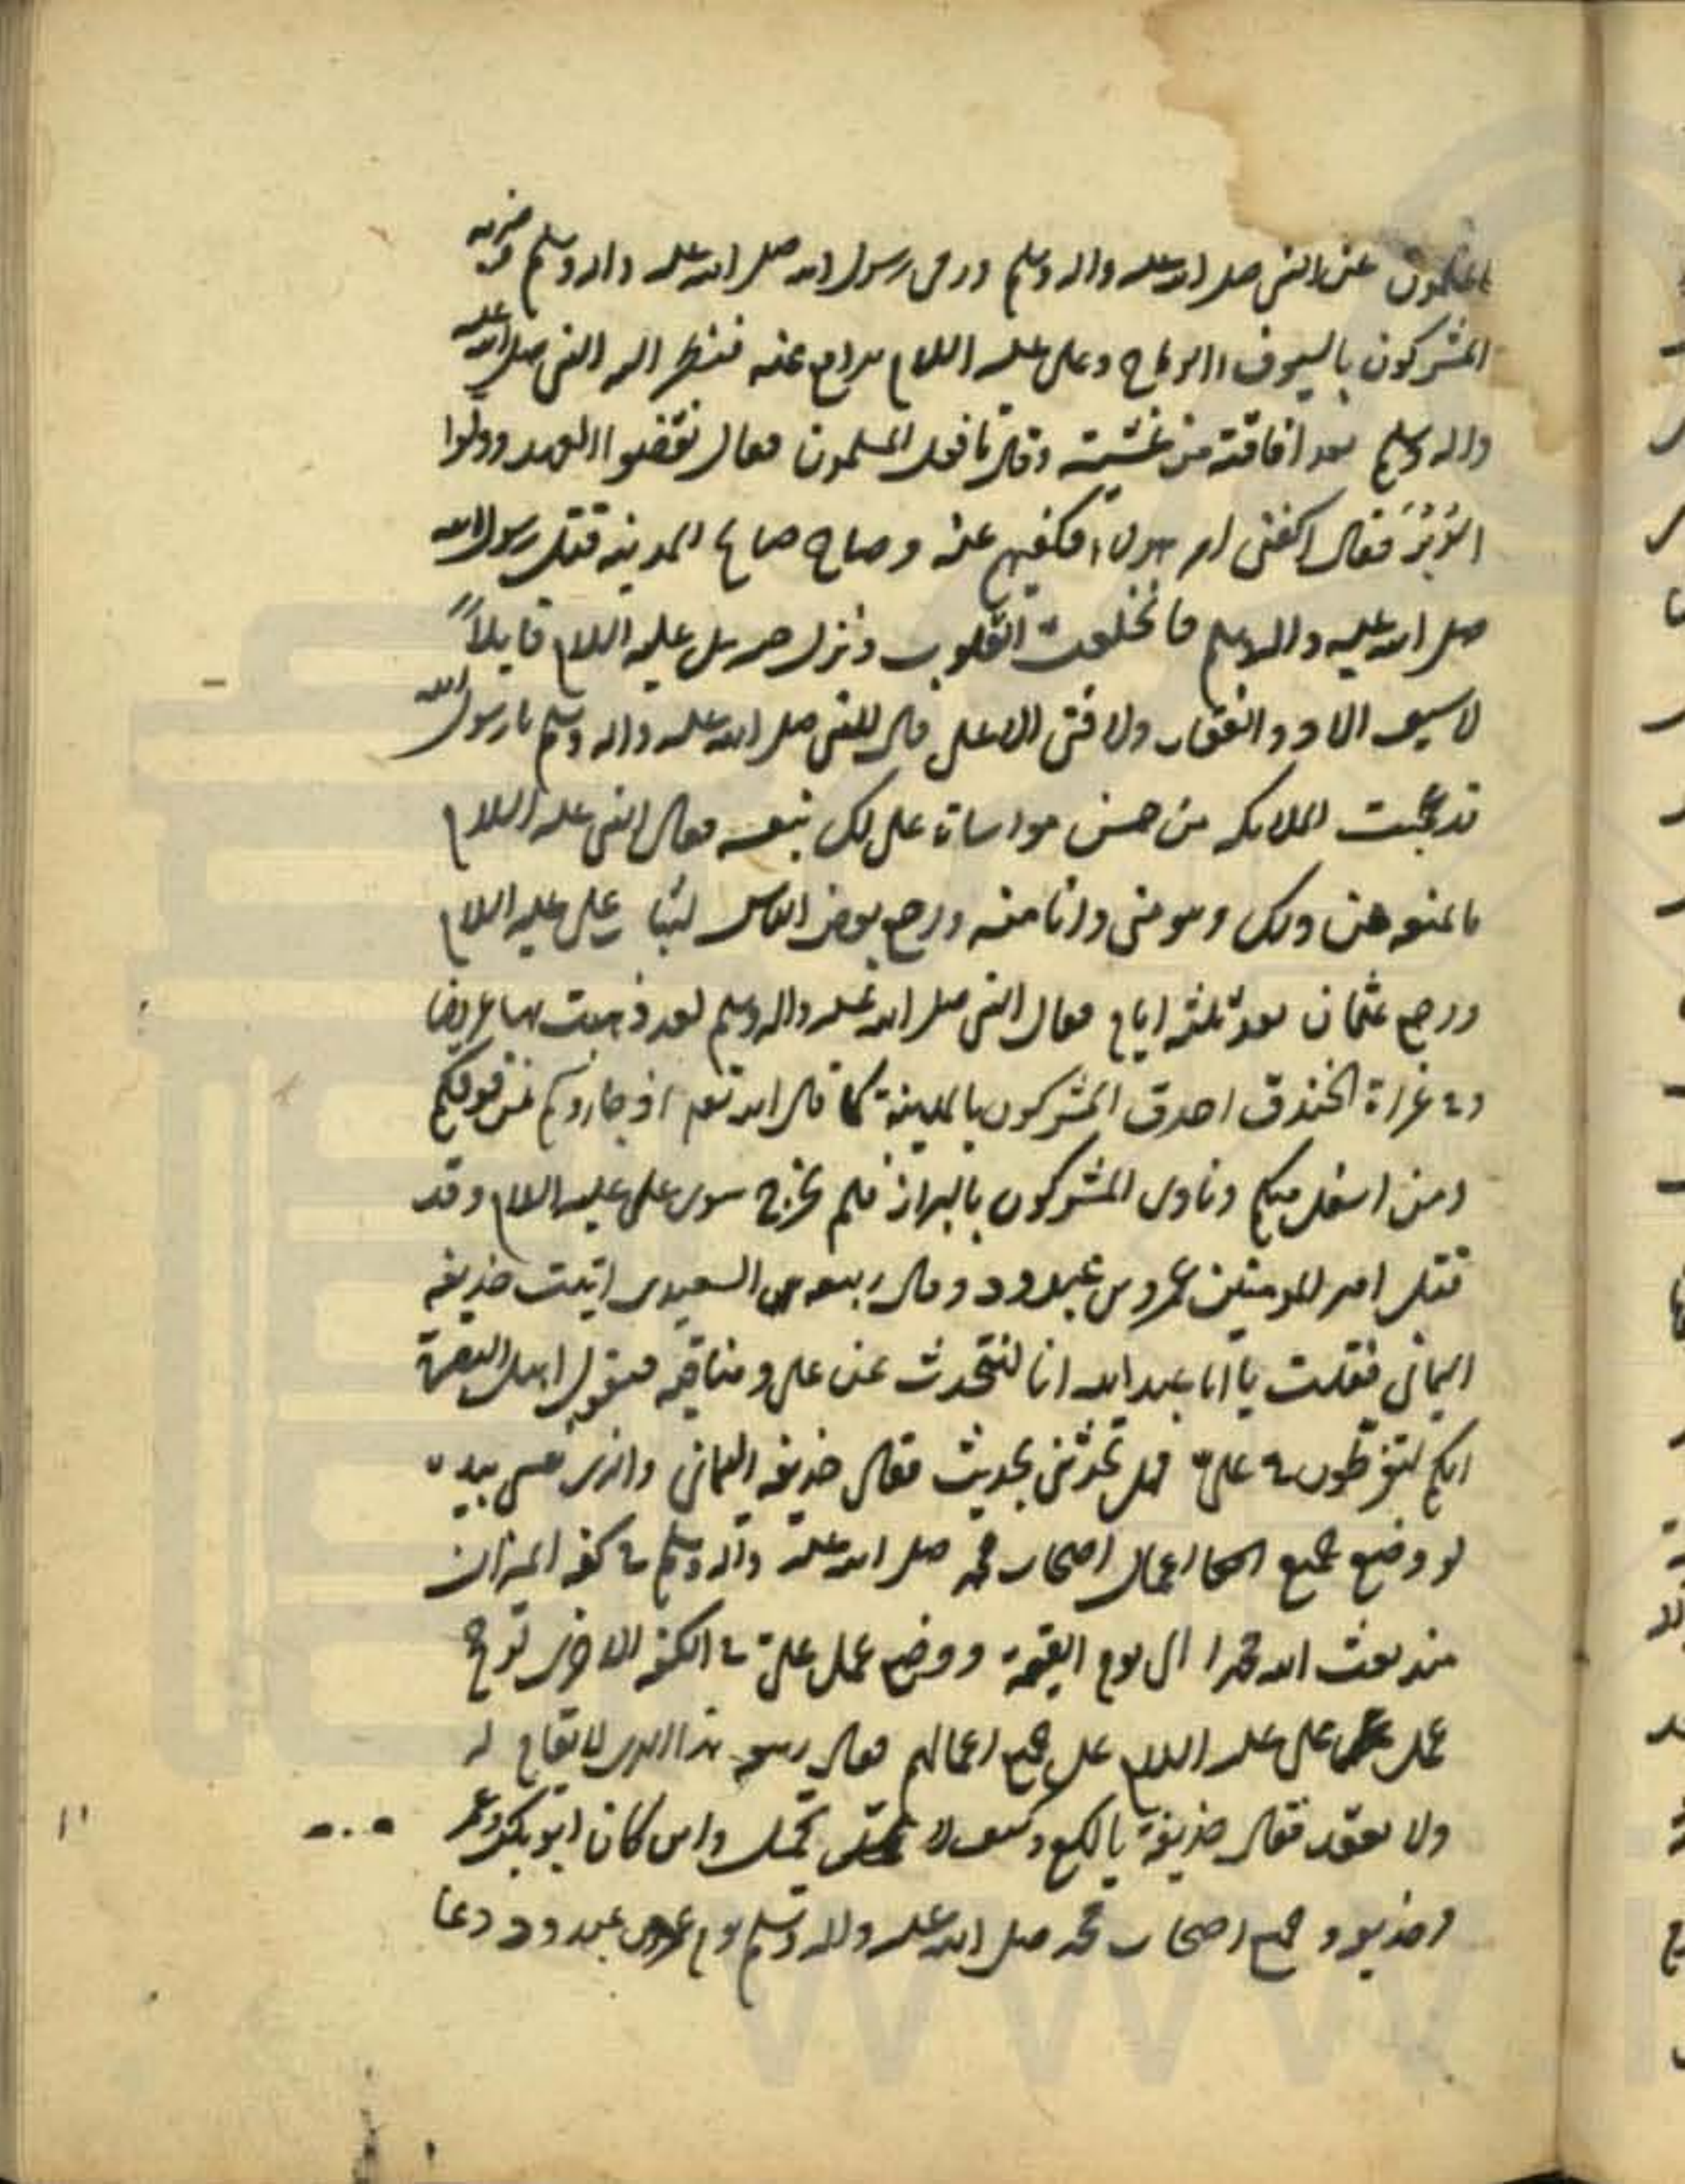 المسلمون عن النبى صلى الله عليه واله وسلم ورمى رسول الله صلى الله عليه واله وسلم وضربه
المشركون بالسيوف والرماح وعلى عليه السلام يدافع عنه فنظر اليه النبى صلى الله عليه
واله وسلم بعد افاقته من غشيته وقال ما فعل المسلمون فقال نقضوا العهد وولوا
الدبر فقال اكفنى امر هولاء فكفيهم عنه وصاح صايح بالمدينة قتل رسول الله
صلى الله عليه واله وسلم فانخلعت القلوب ونزل جبرئيل عليه السلام قايلاً
لا سيف الا ذو الفقار ولا فتى الا على قال للنبى صلى الله عليه واله وسلم يا رسول الله
قد عجبت الملايكه من حسن مواساة على لك بنفسه فقال النبى عليه السلام
ما يمنعه من ذلك وهو منى وانا منه ورجع بعض الناس لثبات على عليه السلام
ورجع عثمان بعد ثلثه ايام فقال النبى صلى الله عليه واله وسلم لقد ذهبت بها عريضا
وفى غزاة الخندق احدق المشركون بالمدينة كما قال الله تعم اذ جاروكم من فوقكم
ومن اسفل منكم ونادى المشركون بالبراز فلم يخرج سوى على عليه السلام وقد
قتل امير المومنين عمرو بن عبدود وقال ربيعه السعيدى اتيت حذيفه
اليمانى فقلت يا ابا عبد الله انا لنتحدث عن على ومناقبه فيقول اهل البصرة
انكم لتفرطون فى على فهل تحدثنى بحديث فقال حذيفه اليمانى والذى نفسى بيده
لو وضع جميع اعمال اصحاب محمد صلى الله عليه واله وسلم فى كفه الميزان
منذ بعث الله محمدا الى يوم القيمة ووضع عمل على فى الكفه الاخرى لرجح
عمل على عليه السلام على جميع اعمالهم فقال ربيعه هذا الذى لا يقام له
ولا يقعد فقال حذيفة يا لكع وكيف لا يحمل واين كان ابو بكر وعمر
وحذيفه وجميع اصحاب محمد صلى الله عليه واله وسلم يوم عمرو بن عبدود ودعا